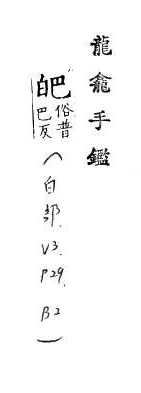 龍龕手鑑
皅俗普
巴反
(白部.V3.P29.B2)